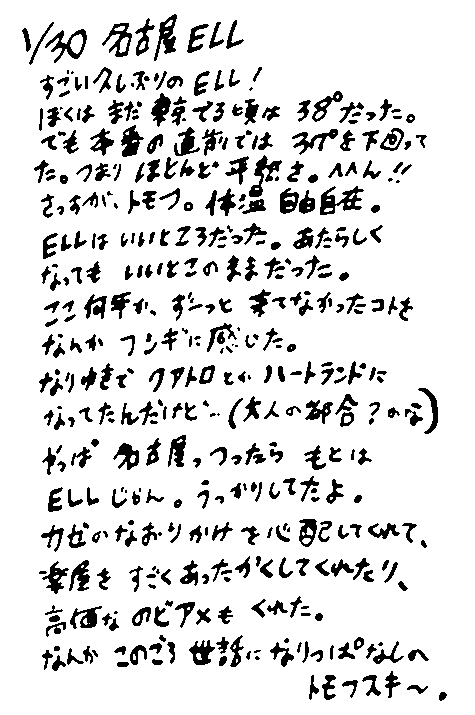 1/30 名古屋ELL
すごい久しぶりのELL!
ぼくはまだ東京でる頃は38°だった。
でも本番の直前では37°を下回って
た。つまりほとんど平熱さ。へへん!!
さっすが、トモフ。体温自由自在。
ELLはいいところだった。あたらしく
なってもいいとこのままだった。
ここ何年か、ずーっと来てなかったコトを
なんかフシギに感じた。
なりゆきでクアトロとかハートランドに
なってたんだけど…(大人の都合?かな)
やっぱ名古屋っつったらもとは
ELLじゃん。うっかりしてたよ。
カゼのなおりかけを心配してくれて、
楽屋をすごくあったかくしてくれたり、
高価なのどアメもくれた。
なんかこのごろ世話になりっぱなしの
トモフスキ〜。